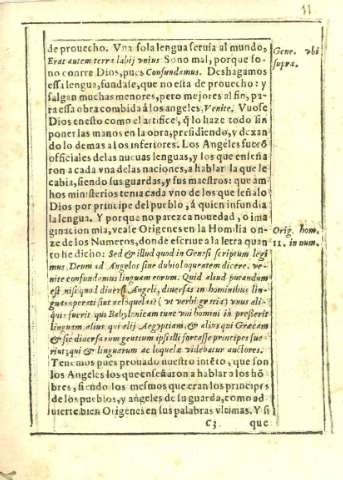 11
de prouecho. Vna sola lengua seruia al mundo,
Erat autem terra labij vnius Sono mal, porque so-
no contra Dios, pues Confundamus. Deshagamos
essa lengua, fundase, que no esta de prouecho: y
salgan muchas menores, pero mejores al fin, pa-
ra essa obra combida à los angeles. Venite. Vuose
Dios en esto como el artifice, q̃ lo haze todo sin
poner las manos en la obra, presidiendo, y dexan
do lo demas a los inferiores. Los Angeles fuerõ
officiales de las nueuas lenguas, y los que enseña
ron a cada vna de las naciones, a hablar la que le
cabia, siendo sus guardas, y sus maestros: que am
bos ministerios tenia cada vno de los que señalo
Dios por principe del pueblo, à quien infundia
la lengua. Y porque no parezca nouedad, o ima
ginacion mia, vea se Origenes en la Homilia on-
ze de los Numeros, donde escriue a la letra quan
to he dicho: Sed & illud quod in Genesi scriptum legi
mus. Deum ad Angelos sine dubio loquutem dicere. ve-
nite confundamus linguam eorum. Quid aliud putandum
est nisi quod diuersi Angeli, diuersas in hominibus lin-
guas operati sint ac loquelas? (vt verbi gratia) vnus ali-
quis fuerit, qui Babylonicam tunc vni homini impresserit
linguam, alius, qui alij Aegyptiam, & alius qui Graecam
& sic diuersarum gentium ipsi illi fortasse principes fue
rint, qui & linguarum ac loquelae videbatur auctores.
Tenemos pues prouado nuestro intẽto, que son
los Angeles los que enseñaron a hablar a los hõ
bres, siendo los mesmos que eran los principes
de los pueblos, y angeles de su guarda, como ad
uierte bien Origenes en sus palabras vltimas. Y si
C3 que
Gene. vbi
supra.
Orig. hom.
11. in num.